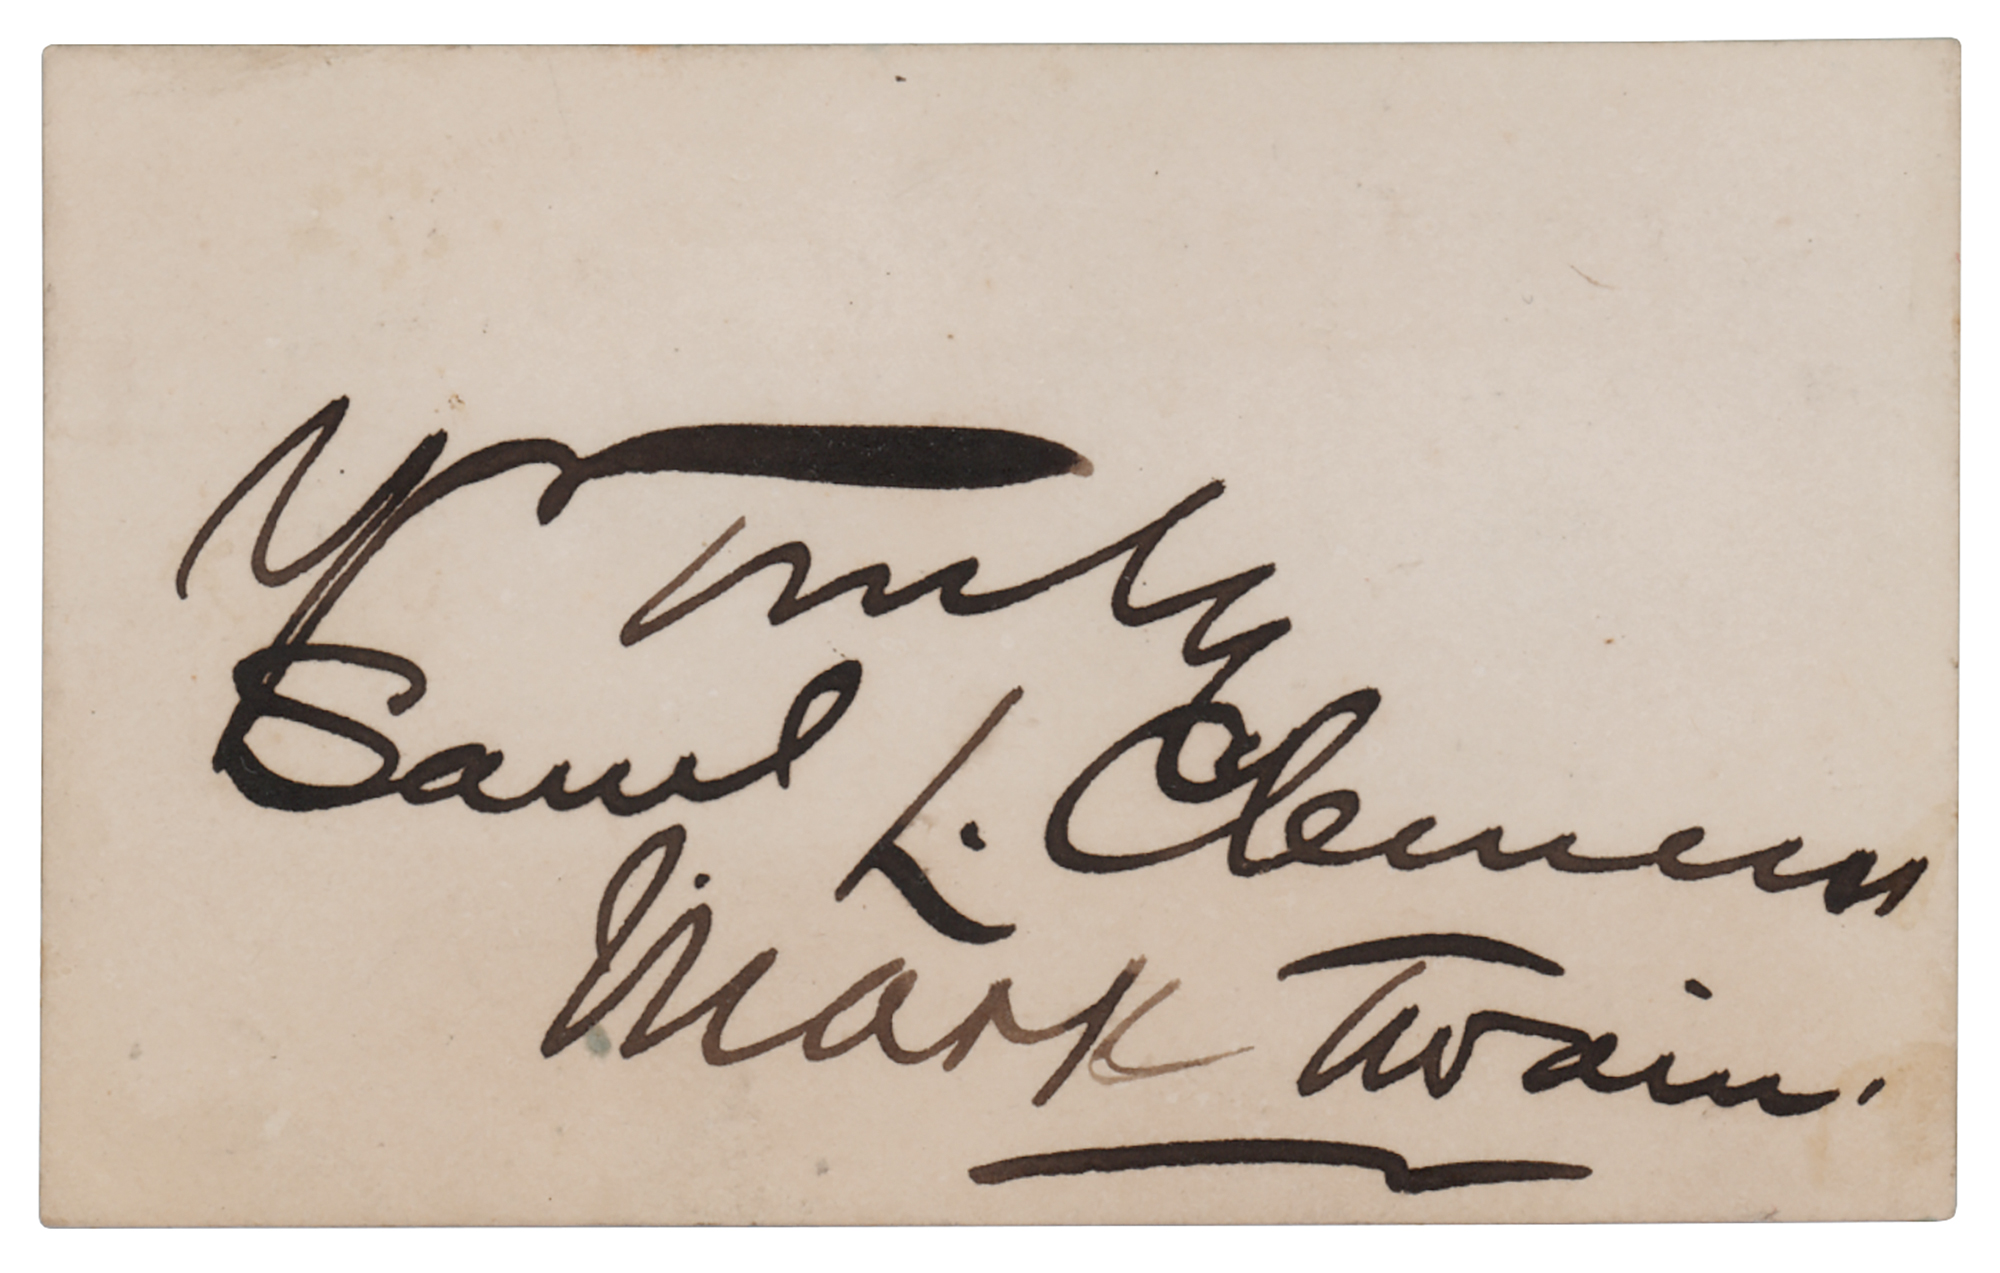 Yrs Truly
Saml L. Clemens
Mark Twain.